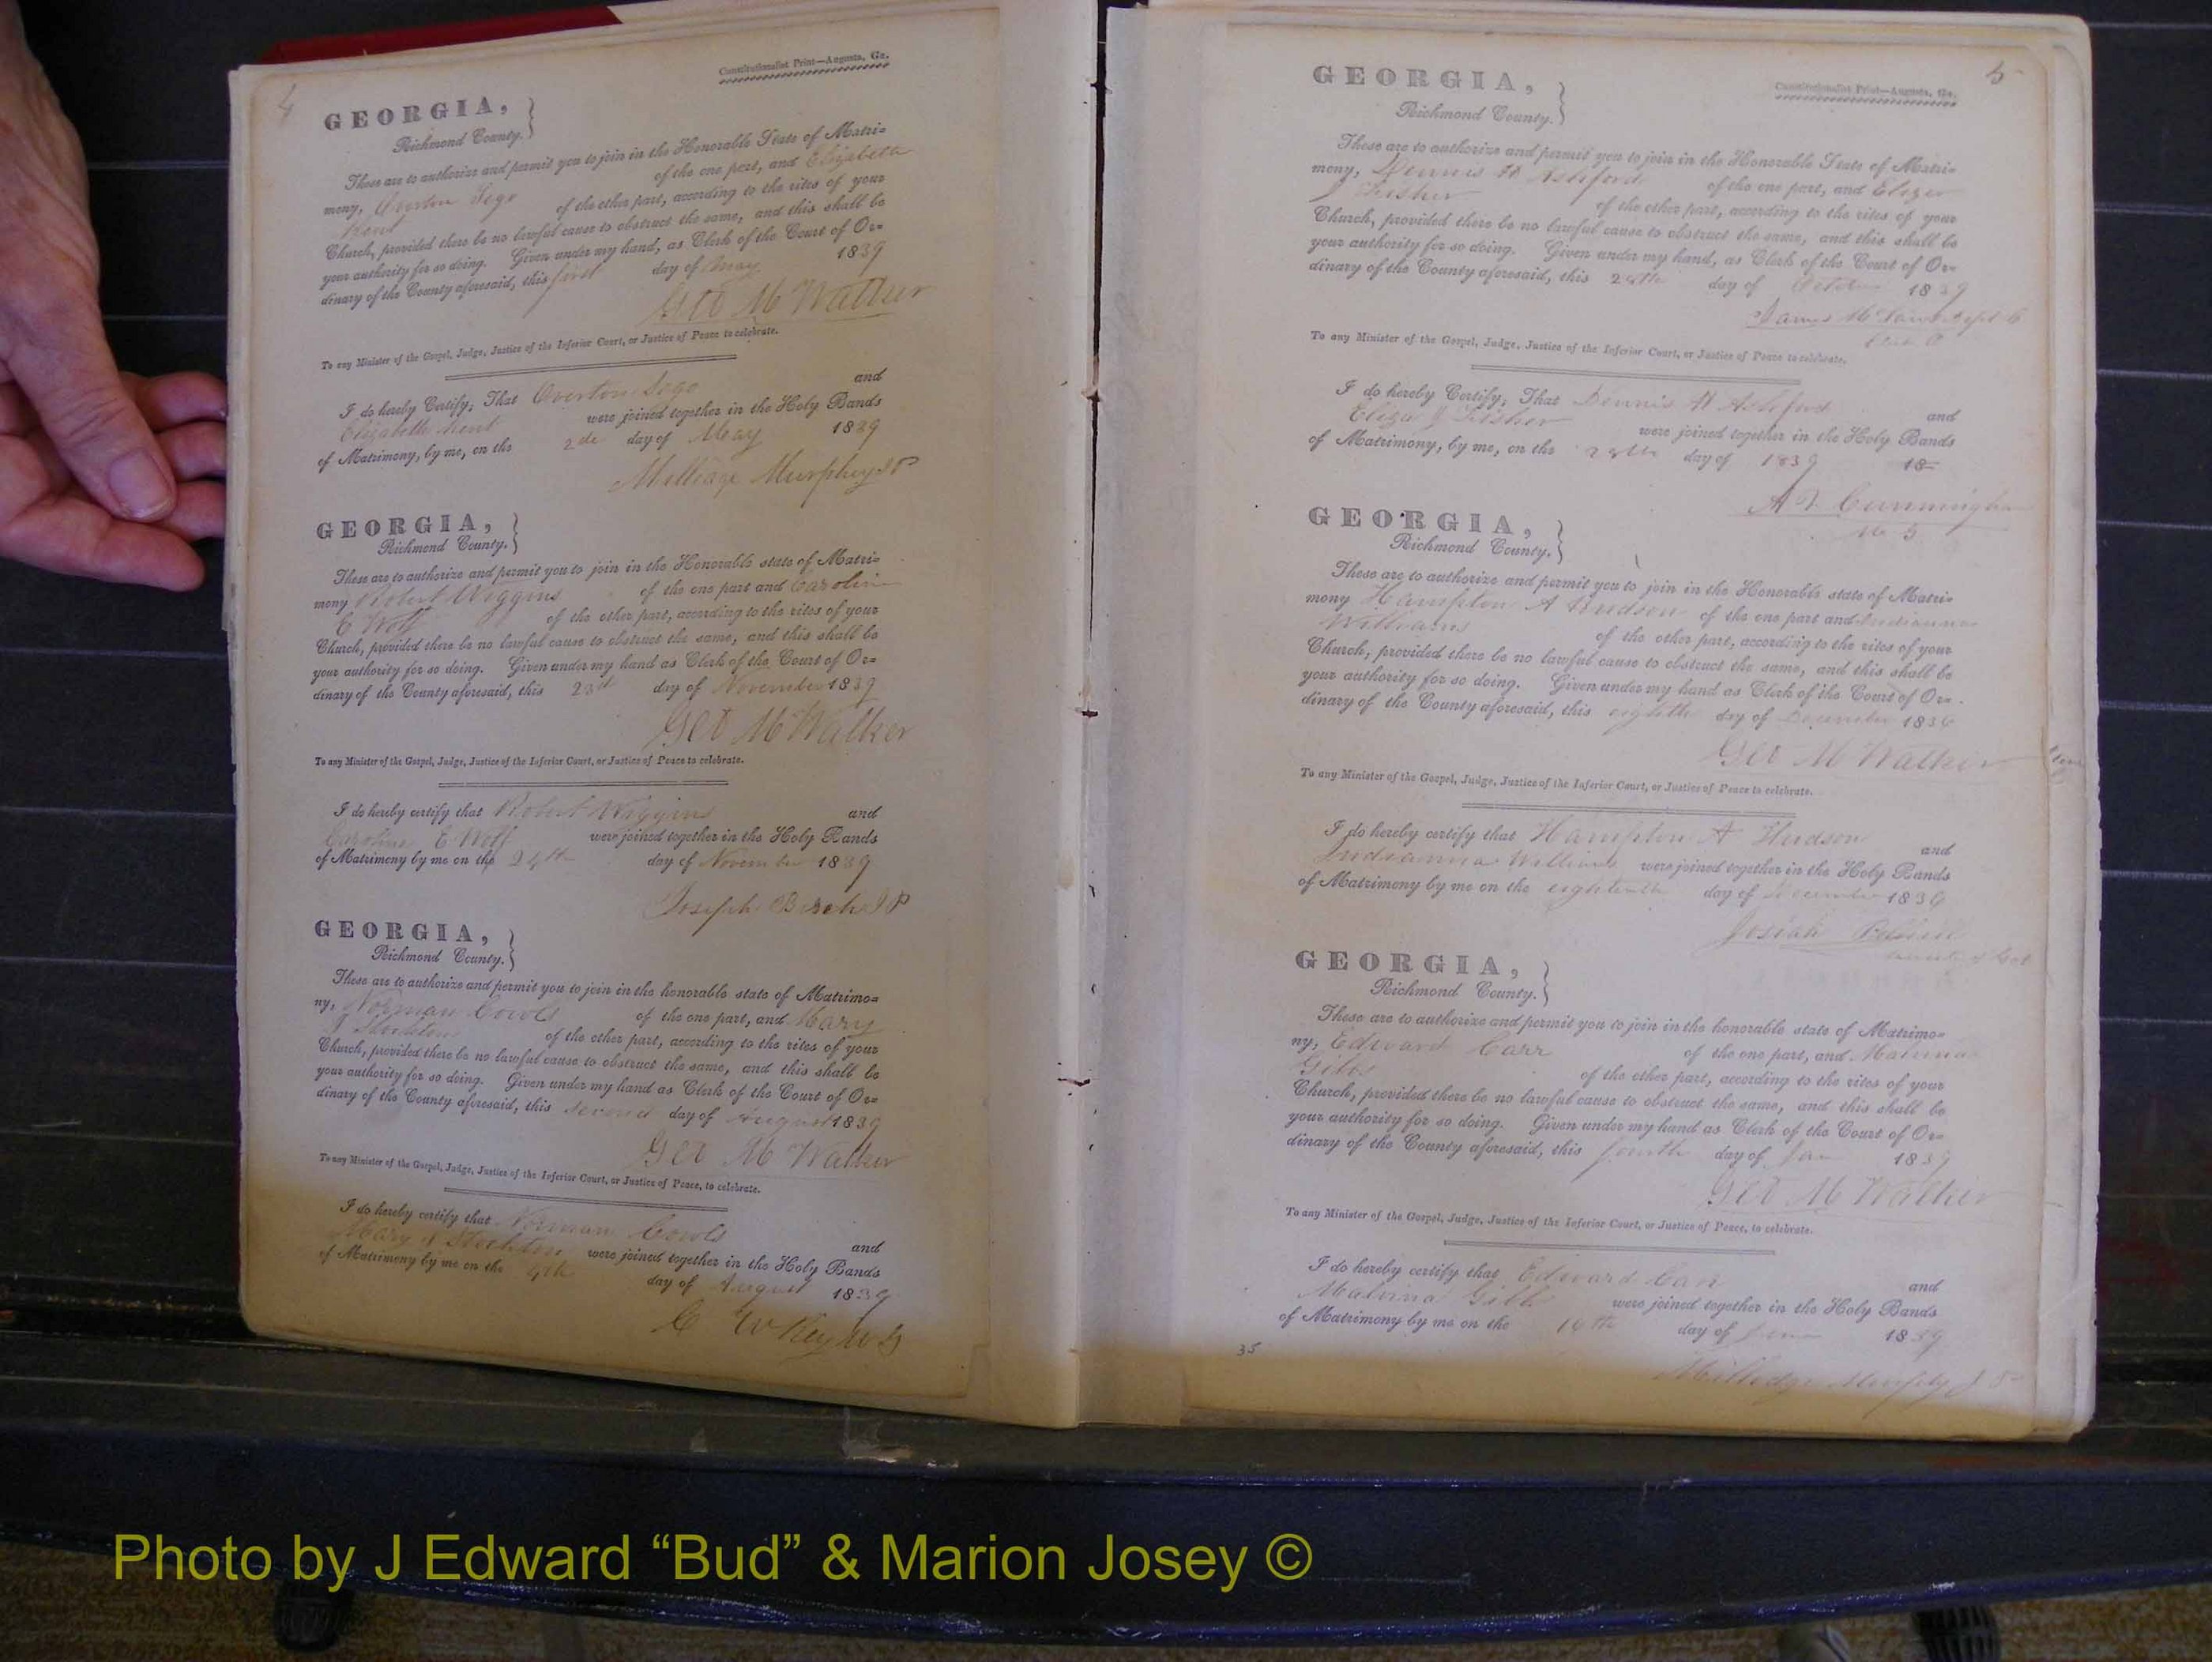 4
Constitutionalist Print—Augusta, Ga.
GEORGIA,
Richmond County.
These are to authorize and permit you to join in the Honorable State of Matri=
mony, Overton Sego of the one part, and Elizabeth
Kent of the other part, according to the rites of your
Church, provided there be no lawful cause to obstruct the same, and this shall be
your authority for so doing. Given under my hand, as Clerk of the Court of Or=
dinary of the County aforesaid, this first day of May 1839
Geo M Walker
To any Minister of the Gospel, Judge, Justice of the Inferior Court, or Justice of Peace to celebrate.
I do hereby Certify; That Overton Sego and
Elizabeth Kent were joined together in the Holy Bands
of Matrimony, by me, on the 2de day of May 1839
Milliage Murphey JP
GEORGIA,
Richmond County.
These are to authorize and permit you to join in the Honorable state of Matri=
mony Robert Wiggins of the one part and Carolin
E Wolf of the other part, according to the rites of your
Church, provided there be no lawful cause to obstruct the same, and this shall be
your authority for so doing. Given under my hand as Clerk of the Court of Or=
dinary of the County aforesaid, this 23d day of November 1839
Geo M Walker
To any Minister of the Gospel, Judge, Justice of the Inferior Court, or Justice of Peace to celebrate.
I do hereby certify that Robert Wiggins and
Caroline E Wolf were joined together in the Holy Bands
of Matrimony by me on the 24th day of November 1839
Joseph JP
GEORGIA,
Richmond County.
These are to authorize and permit you to join in the honorable state of Matrimo=
ny, Norman Cowls of the one part, and Mary
J Stockton of the other part, according to the rites of your
Church, provided there be no lawful cause to obstruct the same, and this shall be
your authority for so doing. Given under my hand as Clerk of the Court of Or=
dinary of the County aforesaid, this second day of August 1839
Geo M Walker
To any Minister of the Gospel, Judge, Justice of the Inferior Court, or Justice of Peace, to celebrate.
I do hereby certify that Norman Cowls and
Mary J Stockton were joined together in the Holy Bands
of Matrimony by me on the day of August 1839
5
Constitutionalist Print—Augusta, Ga.
GEORGIA,
Richmond County.
These are to authorize and permit you to join in the Honorable State of Matri=
mony, Dennis H Ashford of the one part, and Elizer
J Fisher of the other part, according to the rites of your
Church, provided there be no lawful cause to obstruct the same, and this shall be
your authority for so doing. Given under my hand, as Clerk of the Court of Or=
dinary of the County aforesaid, this 28th day of October 1839
James M
To any Minister of the Gospel, Judge, Justice of the Inferior Court, or Justice of Peace to celebrate.
I do hereby Certify; That Dennis H Ashford and
Eliza J Fisher were joined together in the Holy Bands
of Matrimony, by me, on the 28th day of 1839 18
Cunningham
GEORGIA,
Richmond County.
These are to authorize and permit you to join in the Honorable state of Matri=
mony Hampton A Hudson of the one part and Indianna
Williams of the other part, according to the rites of your
Church, provided there be no lawful cause to obstruct the same, and this shall be
your authority for so doing. Given under my hand as Clerk of the Court of Or=
dinary of the County aforesaid, this day of December 1839
Geo M Walker
To any Minister of the Gospel, Judge, Justice of the Inferior Court, or Justice of Peace to celebrate.
I do hereby certify that Hampton A Hudson and
Indianna Williams were joined together in the Holy Bands
of Matrimony by me on the eighteenth day of December 1839
Josiah
GEORGIA,
Richmond County.
These are to authorize and permit you to join in the honorable state of Matrimo=
ny, Edward Carr of the one part, and Malvina
Gibbs of the other part, according to the rites of your
Church, provided there be no lawful cause to obstruct the same, and this shall be
your authority for so doing. Given under my hand as Clerk of the Court of Or=
dinary of the County aforesaid, this fourth day of 1839
Geo M Walker
To any Minister of the Gospel, Judge, Justice of the Inferior Court, or Justice of Peace, to celebrate.
I do hereby certify that Edward Carr and
Malvina were joined together in the Holy Bands
of Matrimony by me on the 16th day of 1839
Milledge Murphy J P
35
Photo by J Edward “Bud” & Marion Josey ©